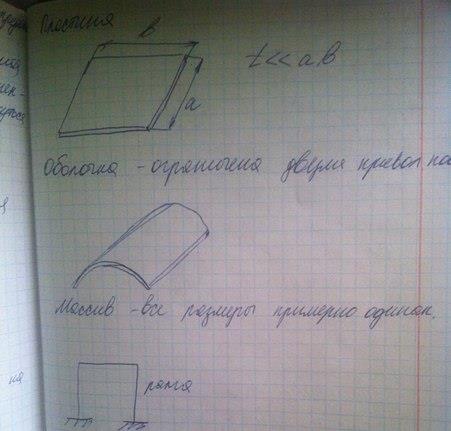 Пластина
в
t << a, в
a
Оболочка - ограничена двумя кривол.
Массив - все размеры примерно одинак.
рама
на